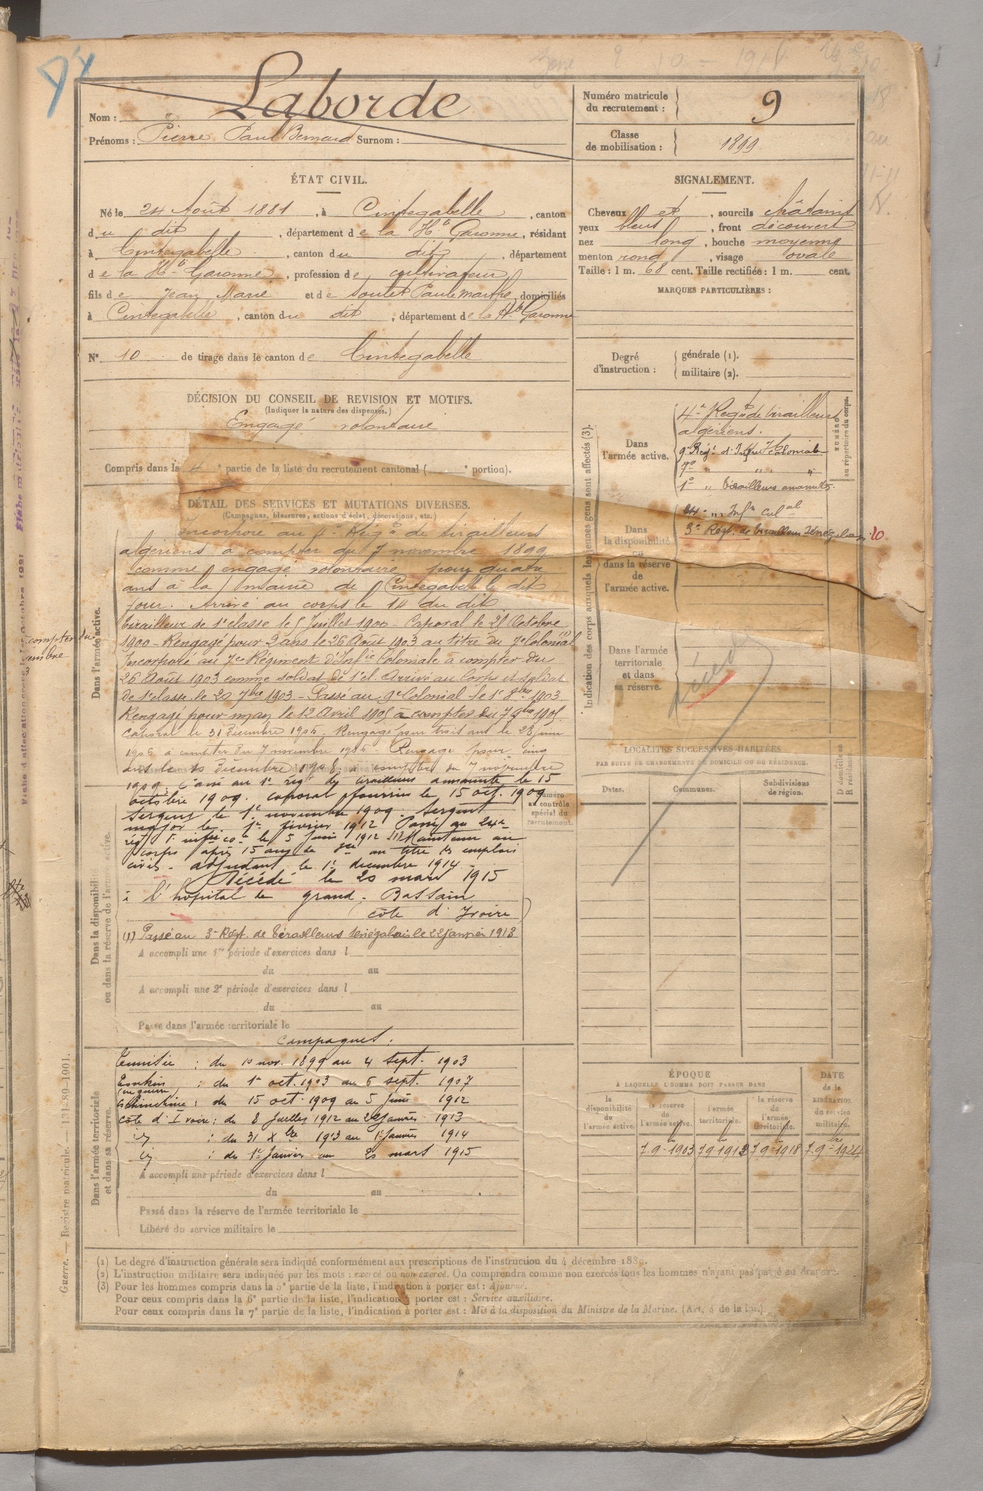 Laborde
Nom :
Prénoms : Pierre Paul Bernard Surnom :
Numéro matricule du recrutement : 9
Classe de mobilisation : 1899
ÉTAT CIVIL.
Né le 24 Août 1881, à Cintegabelle, canton
du dit, département de la Hte Garonne, résidant
à Cintegabelle, canton du dit, département
de la Hte Garonne, profession de cultivateur
fils de Jean Marie et de Soulet Paule Marthe, domiciliés
à Cintegabelle, canton du dit, département de la Hte Garonne
N° 10 de tirage dans le canton de Cintegabelle
SIGNALEMENT.
Cheveux et, sourcils châtains
yeux bleus, front découvert
nez long, bouche moyenne
menton rond, visage ovale
Taille : 1 m. 68 cent. Taille rectifiée : 1 m. cent.
MARQUES PARTICULIÈRES :
Degré d'instruction : générale (1).
militaire (2).
DÉCISION DU CONSEIL DE REVISION ET MOTIFS.
(Indiquer la nature des dispenses.)
Engagé volontaire
Compris dans la 4e partie de la liste du recrutement cantonal ( portion).
DÉTAIL DES SERVICES ET MUTATIONS DIVERSES.
(Campagnes, blessures, actions d'éclat, décorations, etc.)
Incorporé au Régt de tirailleurs
algériens à compter du 7 novembre 1899
comme engagé volontaire pour quatre
ans à la mairie de Cintegabelle le dit
jour. Arrivé au corps le 14 du dit
tirailleur de 1e classe le 5 Juillet 1900 - Caporal le 21 Octobre
1900 - Rengagé pour 2 ans le 26 Août 1903 au titre du 7e Colonial
Incorporé au 7e Régiment d'Inf.ie Coloniale à compter du
26 Août 1903 comme soldat de 2e cl. Arrivé au Corps et soldat
de 1e classe le 20 7bre 1903 - Passé au 9e Colonial le 1er 8bre 1903
Rengagé pour un an le 12 Avril 1905 à compter du 7 9bre 1905
Caporal le 31 Décembre 1905. Rengagé pour trois ans le 28 juin
1906 à compter du 7 novembre 1906 Rengagé pour cinq
ans le 10 décembre 1908 à compter du 7 novembre
1909. Passé au 1er régt de tirailleurs annamites le 15
octobre 1909. Caporal fourrier le 15 oct. 1909
Sergent le 1er novembre 1909. Sergent
major le 1er février 1912 Passé au 24e
régt inf.ie co.le le 5 Juin 1912 (1) Maintenu au
corps après 15 ans de au titre des emplois
civils. adjudant le 1er décembre 1914.
Décédé le 20 mars 1915
à l'hôpital de grand. Bassam
côte d'Ivoire
(1) Passé au 3e Régt. de tirailleurs Sénégalais le 22 Janvier 1913
A accompli une 1re période d'exercices dans l
du au
A accompli une 2e période d'exercices dans l
du au
Passé dans l'armée territoriale le
Campagnes.
: du 10 nov. 1899 au 4 sept. 1903
Tonkin : du 1er oct. 1903 au 6 sept. 1907
(en guerre)
Cochinchine : du 15 oct. 1909 au 5 Juin 1912
Côte d'Ivoire : du 8 Juillet 1912 au 22 Janvier 1913
: du 31 Xbre 1913 au 1er Janvier 1914
: du 1er Janvier au 20 mars 1915
A accompli une période d'exercices dans l
du au
Passé dans la réserve de l'armée territoriale le
Libéré du service militaire le
Dans l'armée active.
Dans la disponibilité ou dans la réserve de l'armée active.
Dans l'armée territoriale et dans sa réserve.
Indication des corps auxquels les jeunes gens sont affectés (3).
Dans l'armée active.
4e Régt de tirailleurs
algériens.
9e Régt d'Inf.ie Coloniale
7e " " "
1er " tirailleurs annamites
24e " Inf.ie Col.ale
3e Régt. de tirailleurs Sénégalais
Dans la disponibilité ou dans la réserve de l'armée active.
Dans l'armée territoriale et dans sa réserve.
NUMÉRO au répertoire du corps.
Numéro au contrôle spécial du recrutement.
LOCALITÉS SUCCESSIVES HABITÉES
PAR SUITE DE CHANGEMENTS DE DOMICILE OU DE RÉSIDENCE.
Dates. Communes. Subdivisions de région. D domiciles R résidence.
ÉPOQUE
À LAQUELLE L'HOMME DOIT PASSER DANS
la disponibilité de l'armée active. la réserve de l'armée active. l'armée territoriale. la réserve de l'armée territoriale.
DATE de la LIBÉRATION du service militaire.
7 9bre 1903 7 9bre 1912 7 9bre 1918 7 9bre 1924
(1) Le degré d'instruction générale sera indiqué conformément aux prescriptions de l'instruction du 4 décembre 1889.
(2) L'instruction militaire sera indiquée par les mots : exercé ou non exercé. On comprendra comme non exercés tous les hommes n'ayant pas passé au drapeau.
(3) Pour les hommes compris dans la 5e partie de la liste, l'indication à porter est : Ajourné.
Pour ceux compris dans la 6e partie de la liste, l'indication à porter est : Service auxiliaire.
Pour ceux compris dans la 7e partie de la liste, l'indication à porter est : Mis à la disposition du Ministre de la Marine. (Art. 4 de la loi.)
Guerre. — Registre matricule. — 131-89-1901.